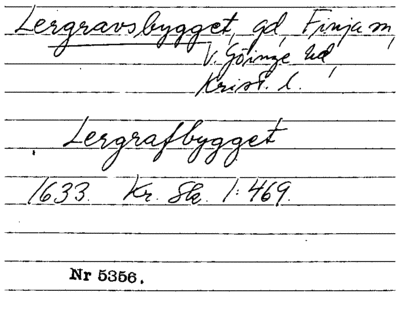 Lergravsbygget, gd, Finja sn,
V. Göinge hd,
Krist. l.
Lergrafbygget
1633. Kr. Sk. 1:469.
Nr 5356.